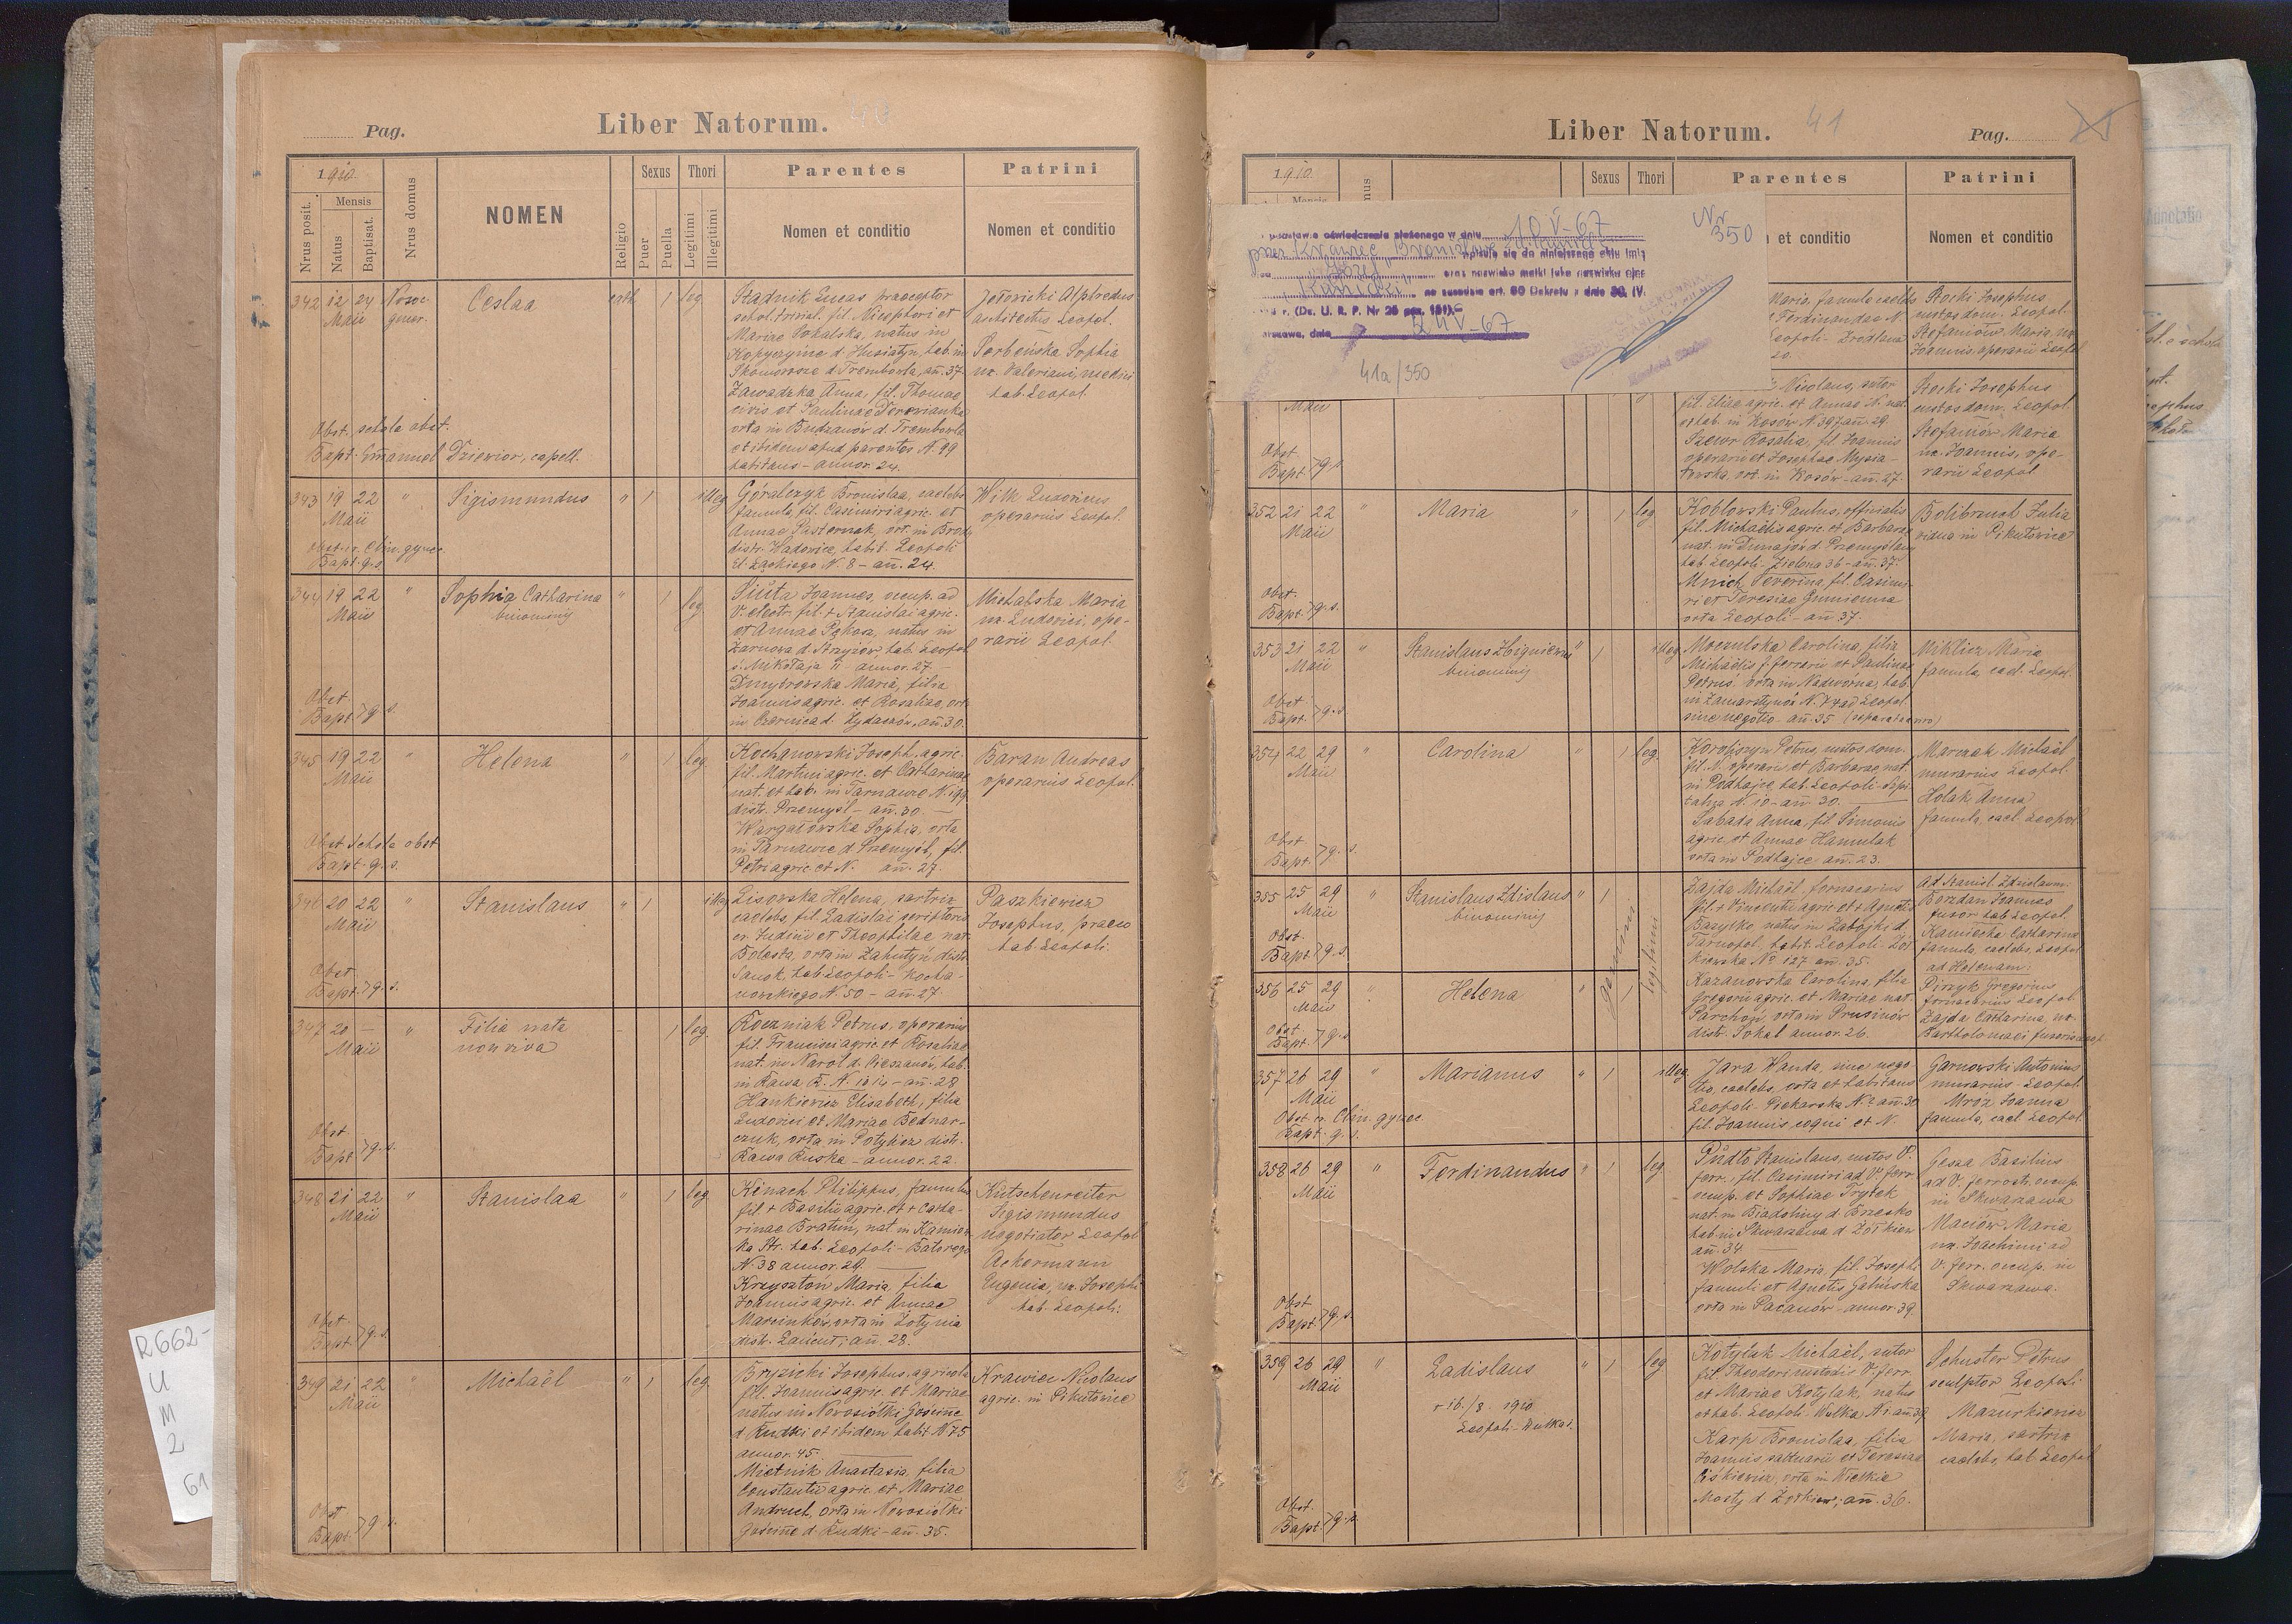 Pag.
Liber Natorum.
40
1910.
Nrus posit.
Mensis
Natus
Baptisat.
Nrus domus
NOMEN
Religio
Sexus
Puer
Puella
Thori
Legitimi
Illegitimi
Parentes
Nomen et conditio
Patrini
Nomen et conditio
342 12 24
Maii
Ceslaa
cath. 1 leg.
Stadnik Lucas praeceptor
schol. trivial. fil. Nicephori et
Mariae Sokalska, natus in
Kopyczyńce d. Husiatyn, hab. in
Skomorosze d. Trembowla, añ. 37.
Zawadzka Anna, fil. Thomae
civis et Paulinae
orta in Budzanów d. Trembowla
et ibidem apud parentes N. 99
habitans - annor. 24.
architectus Leopol.
Sophia
ux. Valeriani, medici
hab. Leopol.
Obst. schola obst.
Bapt. Emanuel Dziewior, capell.
343 19 22 "
Maii
Sigismundus
" 1 illeg.
Góralczyk Bronislaa, caelebs
famula, fil. Casimiri agric. et
Annae Pasternak, ort. in
distr. Wadowice, habit. Leopoli
N. 8 - añ. 24.
Wilk Ludovicus
operarius Leopol.
Obst. ex Clin. gynec.
Bapt. q. s.
344 19 22 "
Maii
Sophia Catharina
binominis
" 1 leg.
Siuta Joannes, occup. ad
V. electr. fil. + Stanislai agric.
et Annae Pękosz, natus in
Żarnowa d. Strzyżów, hab. Leopol.
s. Mikołaja 11 annor. 27 -
Dmytrowska Maria, filia
Joannis agric. et Rosaliae, orta
in Czernica d. Żydaczów, añ. 30.
Michalska Maria
ux. Ludovici, ope-
rarii Leopol.
Obst.
Bapt. } q. s.
345 19 22 "
Maii
Helena
" 1 leg.
Kochanowski Joseph. agric.
fil. Martini agric. et Catharinae
nat. et hab. in Tarnawce N. 199
distr. Przemyśl - añ. 30 -
Wargatowska Sophia, orta
in Tarnawce d. Przemyśl, fil.
Petri agric. et N. añ. 27.
Baran Andreas
operarius Leopol.
Obst. Schola obst.
Bapt. q. s.
346 20 22 "
Maii
Stanislaus
" 1 illeg.
Lisowska Helena, sartrix
caelebs, fil. Ladislai scriptoris
et Theophilae nat.
Bolesta, orta in Zahutyń distr.
Sanok, hab. Leopoli - Kocha-
nowskiego N. 50 - añ. 27.
Paszkiewicz
Josephus, praeco
hab. Leopoli.
Obst.
Bapt. } q. s.
347 20 - "
Maii
Filia nata
non viva
- 1 leg.
Roczniak Petrus, operarius
fil. Francisci agric. et Rosaliae
nat. in Narol d. Cieszanów, hab.
in Rawa R. añ. 28
Hankiewicz Elisabeth, filia
Ludovici et Mariae Bednar-
czuk, orta in Potylicz distr.
Rawa Ruska - annor. 22.
Obst.
Bapt. } q. s.
348 21 22 "
Maii
Stanislaa
" 1 leg.
Kinach Philippus, famulus
fil. + Basilii agric. et + Catha-
rinae Bratuń, nat. in Kamion-
ka Str. hab. Leopoli - Batorego
N. 38 annor. 29. -
Krzysztoń Maria, filia
Joannis agric. et Annae
Marcinków, orta in Żołynia
distr. Łańcut, añ. 28.
Kutschenreiter
Sigismundus
negotiator Leopol.
Ackermann
Eugenia, ux. Josephi
hab. Leopoli.
Obst.
Bapt. } q. s.
349 21 22 "
Maii
Michaël
" 1 leg.
Bryzicki Josephus, agricola
fil. Joannis agric. et Mariae
natus in Nowosiółki Gościnne
d. Rudki et ibidem habit. N. 75
annor. 45.
Mietnik Anastasia, filia
Constantii agric. et Mariae
Andruch, orta in Nowosiółki
Gościnne d. Rudki - añ. 35.
Krawiec Nicolaus
agric. in Pikułowice
Obst.
Bapt. } q. s.
R662-
U
M
2
61
Liber Natorum.
41
Pag.
1910.
Sexus
Thori
Parentes
et conditio
Patrini
Nomen et conditio
Nr
350
podstawie oświadczenia złożonego w dniu 10 V-67
przez Krawiec Bronisławę
wpisuję się do niniejszego aktu imię
Józef
oraz nazwisko matki jako nazwisko ojca
na zasadzie art. 60 Dekretu z dnia
r. (Dz. U. R. P. Nr 25 poz. 151).
Warszawa, dnia V-67
41a/350
Maria, famula caelebs
Ferdinandae N.
Leopoli - Źródlana
Stocki Josephus
custos dom. Leopol.
Stefaniów Maria, ux.
Joannis, operarii Leopol.
Maii
Nicolaus, sutor
fil. Eliae agric. et Annae N. nat.
et hab. in Kosów N. 397 añ. 29.
Szewr Rosalia, fil. Joannis
operarii et Josephae Mysia-
kowska, ort. in Kosów - añ. 27.
Stocki Josephus
custos dom. Leopol.
Stefaniów Maria
ux. Joannis, ope-
rarii Leopol.
Obst.
Bapt. } q. s.
352 21 22 "
Maii
Maria
" 1 leg.
Kobłowski Paulus, officialis
fil. Michaëlis agric. et Barbarae
nat. in Dunajów d. Przemyślany
hab. Leopoli - Zielona 36 - añ. 37.
Mnich Severina, fil. Casimi-
ri et Teresiae Gumienna
orta Leopoli - añ. 37.
Bolibrzuch Julia
vidua in Pikułowice
Obst.
Bapt. } q. s.
353 21 22 "
Maii
Stanislaus Zbigniewus
binominis
" 1 illeg.
Moczulska Carolina, filia
Michaëlis f. ferrarii et Paulinae
Petruś, orta in Nadwórna, hab.
in Zamarstynów N. ad Leopol.
sine negotio - añ. 35 (separata a viro)
Mihlicz Maria
famula, cael. Leopol.
Obst.
Bapt. } q. s.
354 22 29 "
Maii
Carolina
" 1 leg.
Koroliszyn Petrus, custos dom.
fil. N. operarii et Barbarae, nat.
in Podhajce, hab. Leopoli - Szpi-
talna N. 10 - añ. 30.
Sabada Anna, fil. Simonis
agric. et Annae Hamulak
orta in Podhajce añ. 23.
Marczak Michaël
murarius Leopol.
Holak Anna
famula, cael. Leopol.
Obst.
Bapt. } q. s.
355 25 29 "
Maii
Stanislaus Zdislaus
binominis
" 1
gemini
legitimi
Zajda Michaël, fornacarius
fil. + Vincentii agric. et + Agnetis
Bazylko, natus in Zabojki d.
Tarnopol, habit. Leopoli - Żół-
kiewska No 127 añ. 35.
Ad Stanisl. Zdzislaum:
Bozdan Joannes
fusor hab. Leopol.
Kamieńska Catharina
famula, caelebs, Leopol.
ad Helenam:
Obst.
Bapt. } q. s.
356 25 29 "
Maii
Helena
" 1
Kazanowska Carolina, filia
Gregorii agric. et Mariae nat.
Parchon, orta in Prusinów
distr. Sokal annor. 26.
Pirzyk Gregorius
fornacarius Leopol.
Zajda Catharina, ux.
Bartholomaei fusoris Leopol.
Obst.
Bapt. } q. s.
357 26 29 "
Maii
Marianus
" 1 illeg.
Jara Wanda, sine nego-
tio, caelebs, orta et habitans
Leopoli - Piekarska añ. 30
fil. Joannis coqui et N.
Garnowski Antonius
murarius - Leopol.
Mróz Joanna
famula, cael. Leopol.
Obst. ex Clin. gynec.
Bapt. q. s.
358 26 29 "
Maii
Ferdinandus
" 1 leg.
Pudło Stanislaus, custos V.
ferr., fil. Casimiri ad V. ferr.
occup. et Sophiae Trytek
nat. in Biadoliny d. Brzesko
hab. in Skwarzawa d. Żółkiew
añ. 34
Wolska Maria, fil. Josephi
famuli et Agnetis
orta in Pacanów - annor. 39.
Gesza Basilius
ad V. ferrostr. occup.
in Skwarzawa
Maciów Maria
ux. Joachimi ad
V. ferr. occup. in
Skwarzawa.
Obst.
Bapt. } q. s.
359 26 29 "
Maii
Ladislaus
+ 16./8. 1910
Leopoli - Wulka 1.
" 1 leg.
Kotylak Michaël, sutor
fil. Theodori custodis V. ferr.
et Mariae Kotylak, natus
et hab. Leopoli - Wulka N. 1 añ. 39
Karp Bronislaa, filia
Joannis saltuarii et Teresiae
Ciśkiewicz, orta in Wielkie
Mosty d. Żółkiew, añ. 36.
Schuster Petrus
sculptor Leopoli
Mazurkiewicz
Maria, sartrix
caelebs, hab. Leopol.
Obst.
Bapt. } q. s.
Annotatio